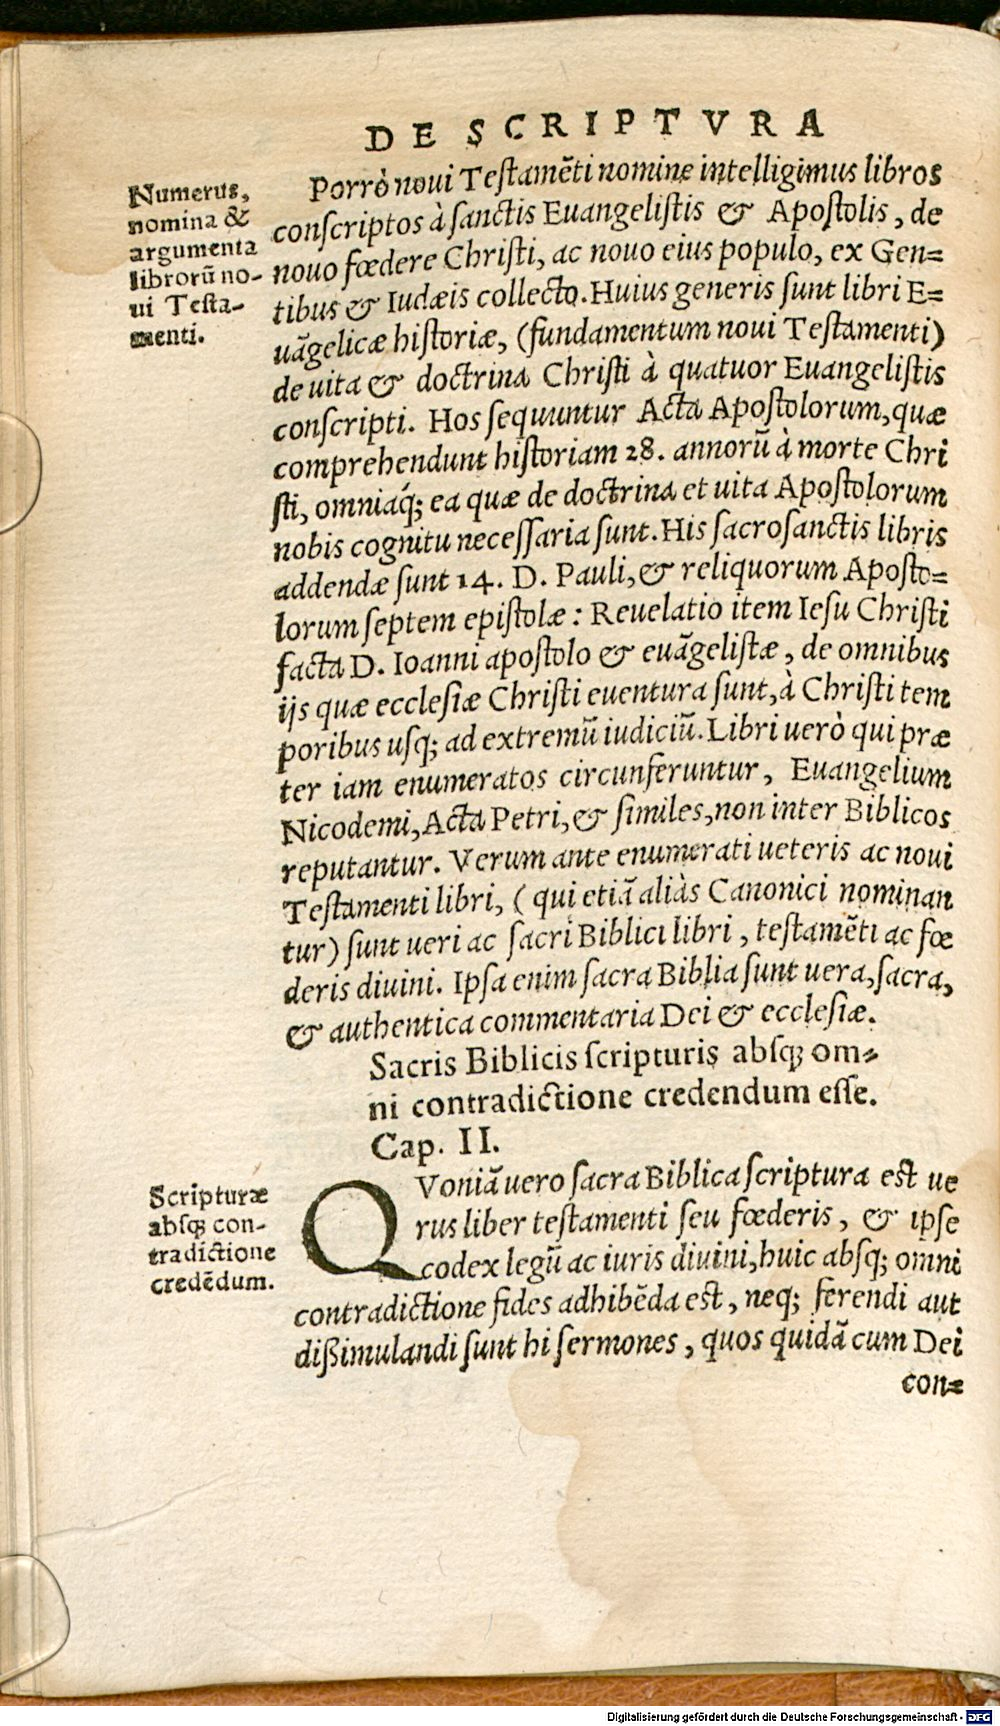 DE SCRIPTVRA
Numerus,
nomina &
argumenta
librorũ no-
ui Testa-
menti.
Porrò noui Testamẽti nomine intelligimus libros
conscriptos à sanctis Euangelistis & Apostolis, de
nouo fœdere Christi, ac nouo eius populo, ex Gen=
tibus & Iudæis collecto. Huius generis sunt libri E=
uãgelicæ historiæ, (fundamentum noui Testamenti)
de uita & doctrina Christi à quatuor Euangelistis
conscripti. Hos sequuntur Acta Apostolorum, quæ
comprehendunt historiam 28. annorũ à morte Chri
sti, omniaq́; ea quæ de doctrina et uita Apostolorum
nobis cognitu necessaria sunt. His sacrosanctis libris
addendæ sunt 14. D. Pauli, & reliquorum Aposto=
lorum septem epistolæ: Reuelatio item Iesu Christi
facta D. Ioanni apostolo & euãgelistæ, de omnibus
ijs quæ ecclesiæ Christi euentura sunt, à Christi tem
poribus usq; ad extremũ iudiciũ. Libri uerò qui præ
ter iam enumeratos circunferuntur, Euangelium
Nicodemi, Acta Petri, & similes, non inter Biblicos
reputantur. Verum ante enumerati ueteris ac noui
Testamenti libri, (qui etiã aliàs Canonici nominan
tur) sunt ueri ac sacri Biblici libri, testamẽti ac fœ
deris diuini. Ipsa enim sacra Biblia sunt uera, sacra,
& authentica commentaria Dei & ecclesiæ.
Sacris Biblicis scripturis absq; om=
ni contradictione credendum esse.
Cap. II.
Scripturæ
absq; con-
tradictione
credẽdum.
QVoniã uero sacra Biblica scriptura est ue
rus liber testamenti seu fœderis, & ipse
codex legũ ac iuris diuini, huic absq; omni
contradictione fides adhibẽda est, neq; ferendi aut
dißimulandi sunt hi sermones, quos quidã cum Dei
con=
Digitalisierung gefördert durch die Deutsche Forschungsgemeinschaft - DFG